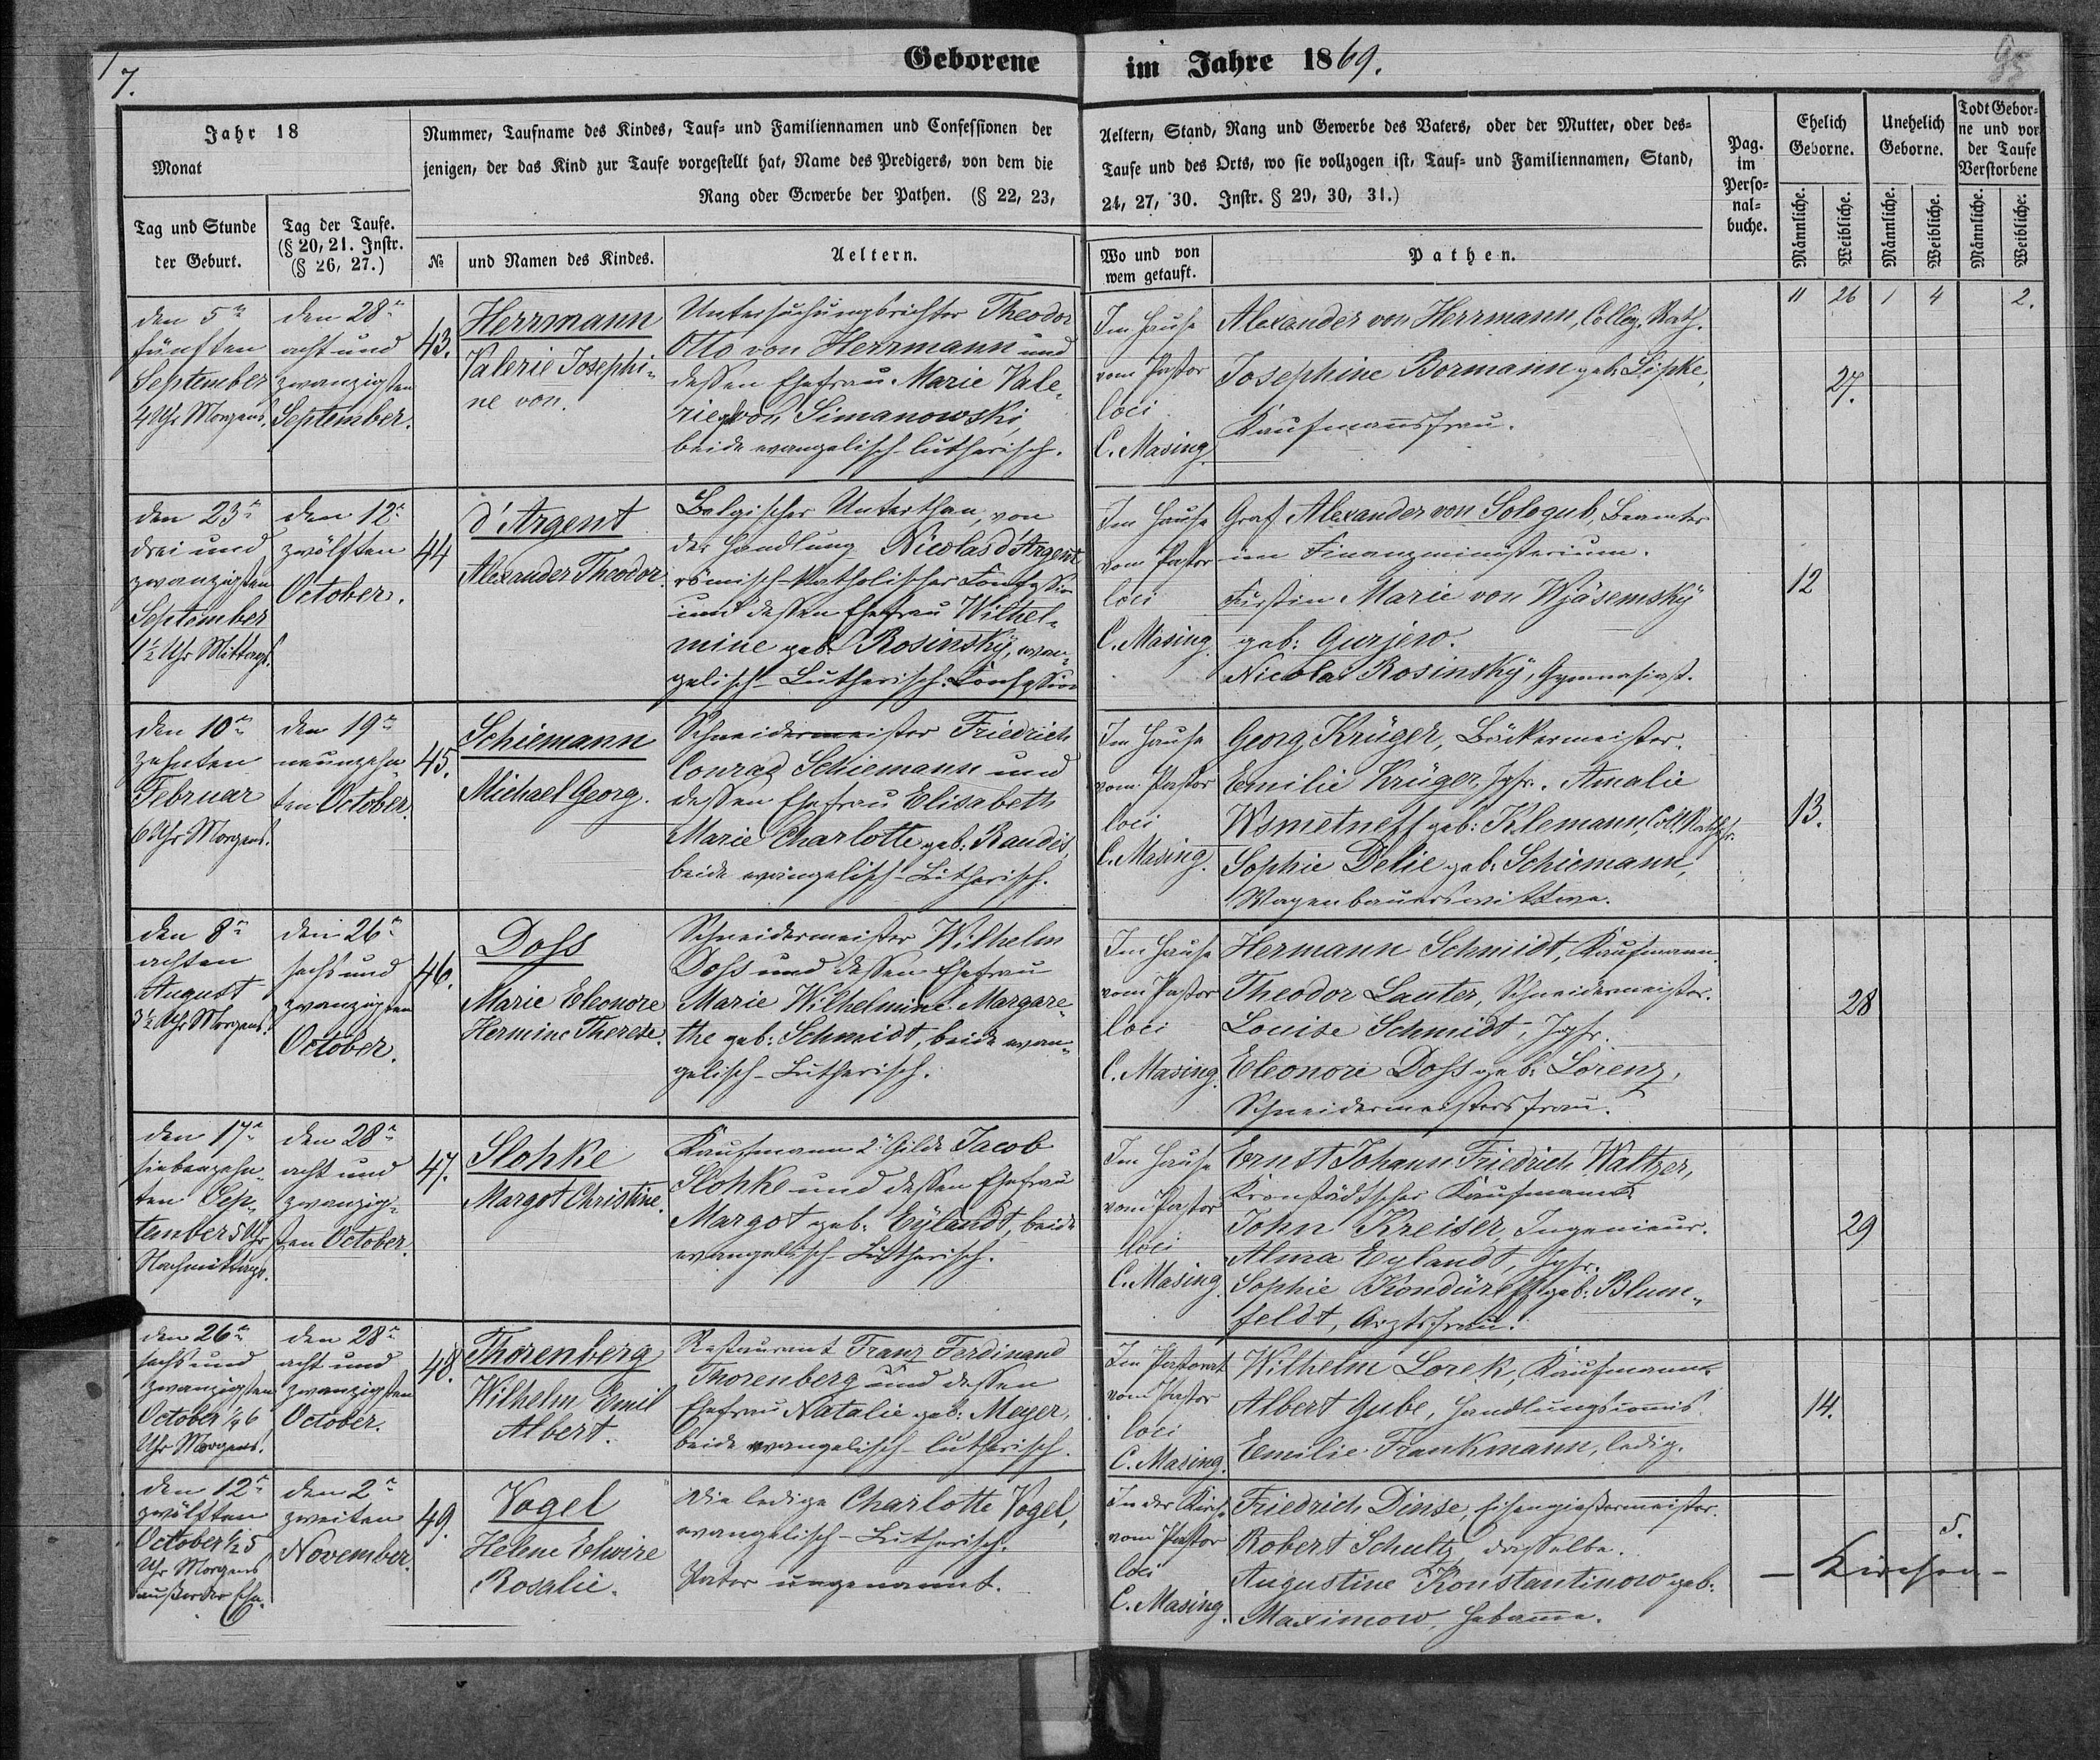 Geborene im Jahre 1869.
7.
95
Jahr 18
Monat
Tag und Stunde
der Geburt.
Tag der Taufe.
(§ 20, 21. Instr.
(§ 26, 27.)
Nummer, Taufname des Kindes, Tauf= und Familiennamen und Confessionen der
jenigen, der das Kind zur Taufe vorgestellt hat, Name des Predigers, von dem die
Rang oder Gewerbe der Pathen. (§ 22, 23,
№
und Namen des Kindes.
Aeltern.
Aeltern, Stand, Rang und Gewerbe des Vaters, oder der Mutter, oder des=
Taufe und des Orts, wo sie vollzogen ist, Tauf= und Familiennamen, Stand,
24, 27, 30. Instr. § 29, 30, 31.)
Wo und von
wem getauft.
Pathen.
Pag.
im
Perso=
nal=
buche.
Ehelich
Geborne.
Unehelich
Geborne.
Todt Gebor=
ne und vor
der Taufe
Verstorbene
Männliche.
Weibliche.
Männliche.
Weibliche.
Männliche.
Weibliche.
11 26 1 4 2.
den 5n
fünften
September
4 Uhr Morgens.
den 28n
acht und
zwanzigsten
September.
43.
Herrmann
Valerie Josephi-
ne von.
Untersuchungsrichter Theodor
Otto von Herrmann und
dessen Ehefrau Marie Vale-
rie von Simanowski,
beide evangelisch-lutherisch.
Im Hause
vom Pastor
loci
C. Masing
Alexander von Herrmann, Colleg. Rath.
Josephine Bormann geb. Lipke,
Kaufmannsfrau.
27.
den 23n
drei und
zwanzigsten
September
1½ Uhr Mittags.
den 12n
zwölften
October.
44
d'Argent
Alexander Theodor.
Belgischer Unterthan, von
der Handlung Nicolas d'Argent
römisch-katholischer Confession
und dessen Ehefrau Wilhel-
mine geb. Rosinsky, evan-
gelisch-Lutherisch. Confession
Im Hause
vom Pastor
loci
C. Masing.
Graf Alexander von Sologub, Beamter
im Finanzministerium.
Fürstin Marie von Wjäsemsky
geb: Gurjew.
Nicolai Rosinsky, Gymnasiast.
12
den 10n
zehnten
Februar
6 Uhr Morgens.
den 19n
neunzehn-
ten October.
45.
Schiemann
Michael Georg.
Schneidermeister Friedrich
Conrad Schiemann und
dessen Ehefrau Elisabeth
Marie Charlotte geb: Baudis,
beide evangelisch-Lutherisch.
Im Hause
vom Pastor
loci
C. Masing.
Georg Krüger, Bäckermeister.
Emilie Krüger, Jgfr. Amalie
Wsmetneff geb: Klemann, Coll. Rathsfr.
Sophie Delie geb. Schiemann,
Wagenbauerswittwe.
13.
den 8n
achten
August
3½ Uhr Morgens.
den 26n
sechs und
zwanzigsten
October.
46.
Doss
Marie Eleonore
Hermine Therese.
Schneidermeister Wilhelm
Doss und dessen Ehefrau
Marie Wilhelmine Margare-
the geb: Schmidt, beide evan-
gelisch-Lutherisch.
Im Hause
vom Pastor
loci
C. Masing.
Hermann Schmidt, Kaufmann.
Theodor Lauter, Schneidermeister.
Louise Schmidt, Jgfr.
Eleonore Doss geb: Lorenz,
Schneidermeistersfrau.
28
den 17n
siebenzehn-
ten Sep-
tember 5 Uhr
Nachmittags.
den 28n
acht und
zwanzig-
sten October.
47.
Slohke
Margot Christine.
Kaufmann 2r Gilde Jacob
Slohke und dessen Ehefrau
Margot geb: Eylandt, beide
evangelisch-Lutherisch.
Im Hause
vom Pastor
loci
C. Masing.
Ernst Johann Friedrich Waltzer,
Kronstädtscher Kaufmann.
John Kreiser, Ingenieur.
Alma Eylandt, Jgfr.
Sophie Kondüreff geb: Blum-
feldt, Arztsfrau.
29
den 26n
sechs und
zwanzigsten
October ½ 6
Uhr Morgens.
den 28n
acht und
zwanzigsten
October.
48.
Thorenberg
Wilhelm Emil
Albert.
Restaurant Franz Ferdinand
Thorenberg und dessen
Ehefrau Natalie geb: Meyer,
beide evangelisch-lutherisch.
Im Pastorat
vom Pastor
loci
C. Masing.
Wilhelm Lorek, Kaufmann.
Albert Gube, Handlungscomis.
Emilie Frankmann, ledig.
14.
den 12n
zwölften
October ½ 5
Uhr Morgens
außer der Ehe.
den 2n
zweiten
November.
49.
Vogel
Helene Elwire
Rosalie.
Die ledige Charlotte Vogel,
evangelisch-Lutherisch.
Vater ungenannt.
In der Kirche
vom Pastor
loci
C. Masing.
Friedrich Dinse, Eisengießermeister.
Robert Schultz, dasselbe.
Augustine Konstantinow geb:
Maximow, Hebamme.
5.
- Kirchen -